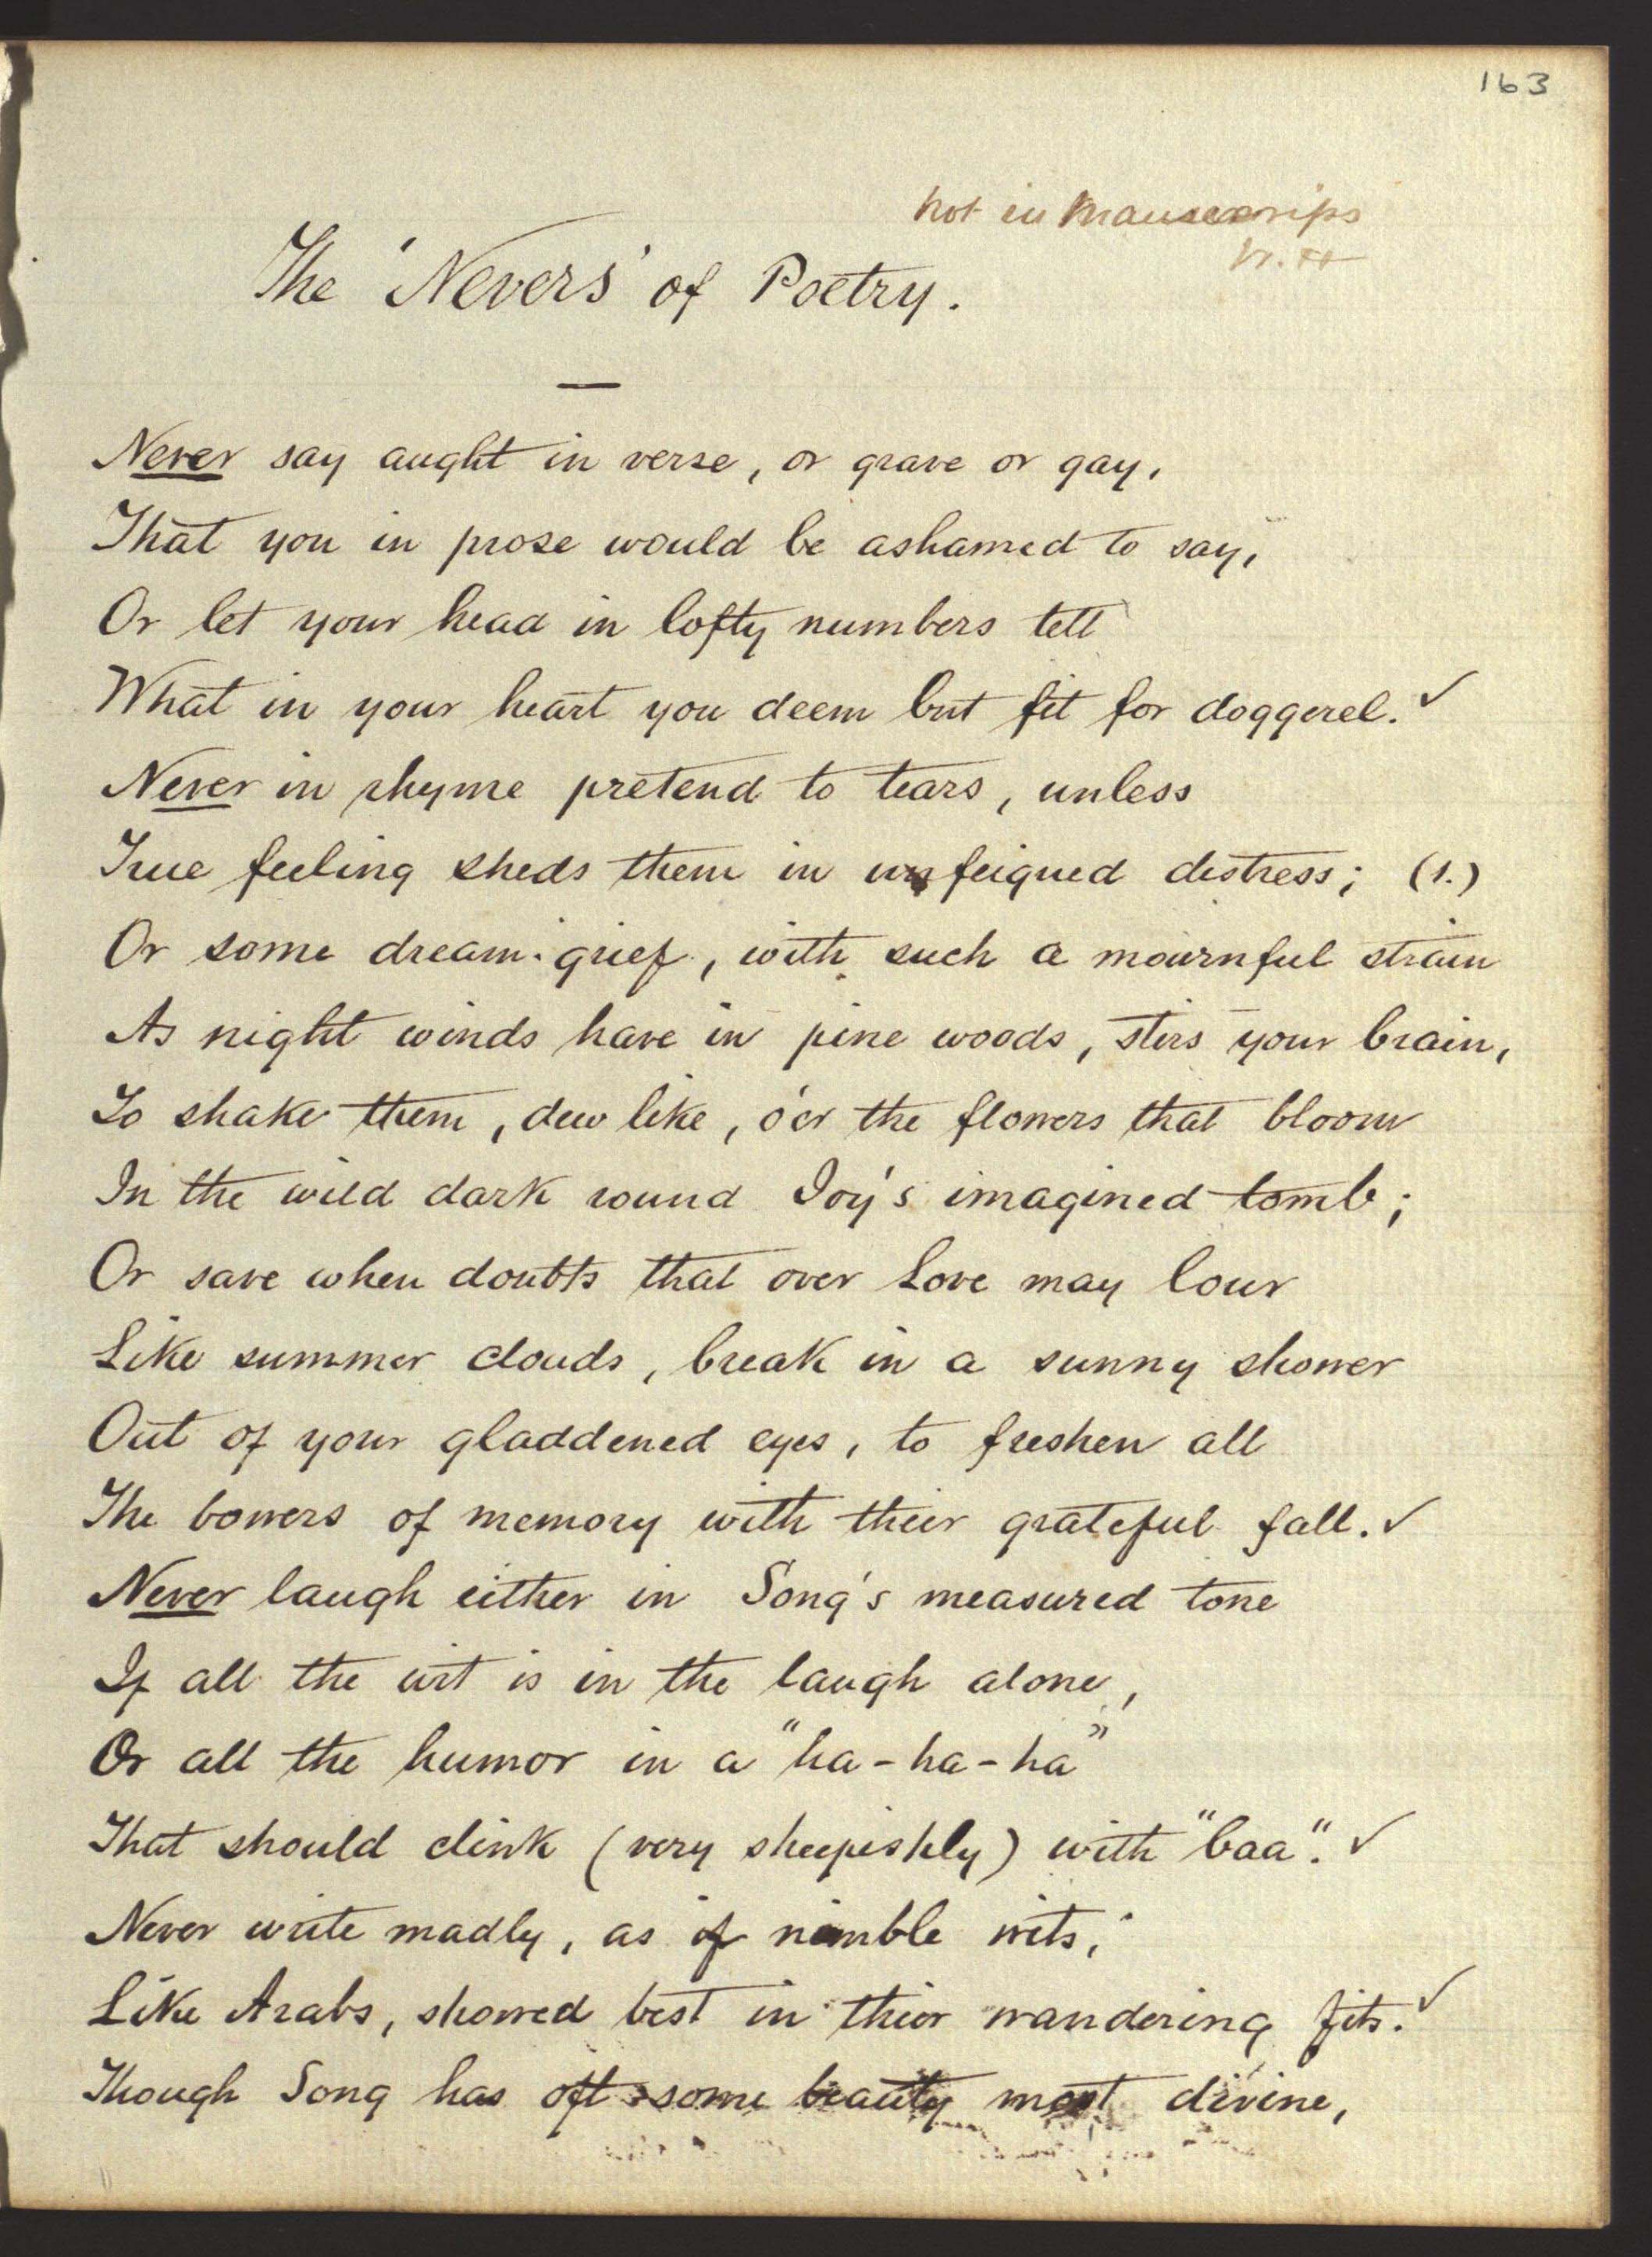 163
Not in Manuscrips
The 'Nevers' of Poetry.
Never say aught in verse, or grave or gay,
That you in prose would be ashamed to say,
Or let your head in lofty numbers tell
What in your heart you deem but fit for doggerel. ✓
Never in rhyme pretend to tears, unless
True feeling sheds them in unfeigned distress; (1.)
Or some dream-grief, with such a mournful strain
As night winds have in pine woods, stirs your brain,
To shake them, dew like, o'er the flowers that bloom
In the wild dark round Joy's imagined tomb;
Or save when doubts that over Love may lour
Like summer clouds, break in a sunny shower
Out of your gladdened eyes, to freshen all
The bowers of memory with their grateful fall. ✓
Never laugh either in Song's measured tone
If all the wit is in the laugh alone,
Or all the humor in a "ha-ha-ha"
That should clink (very sheepishly) with "baa". ✓
Never write madly, as if nimble wits,
Like Arabs, showed best in thier wandering fits. ✓
Though Song has oft some beauty most divine,